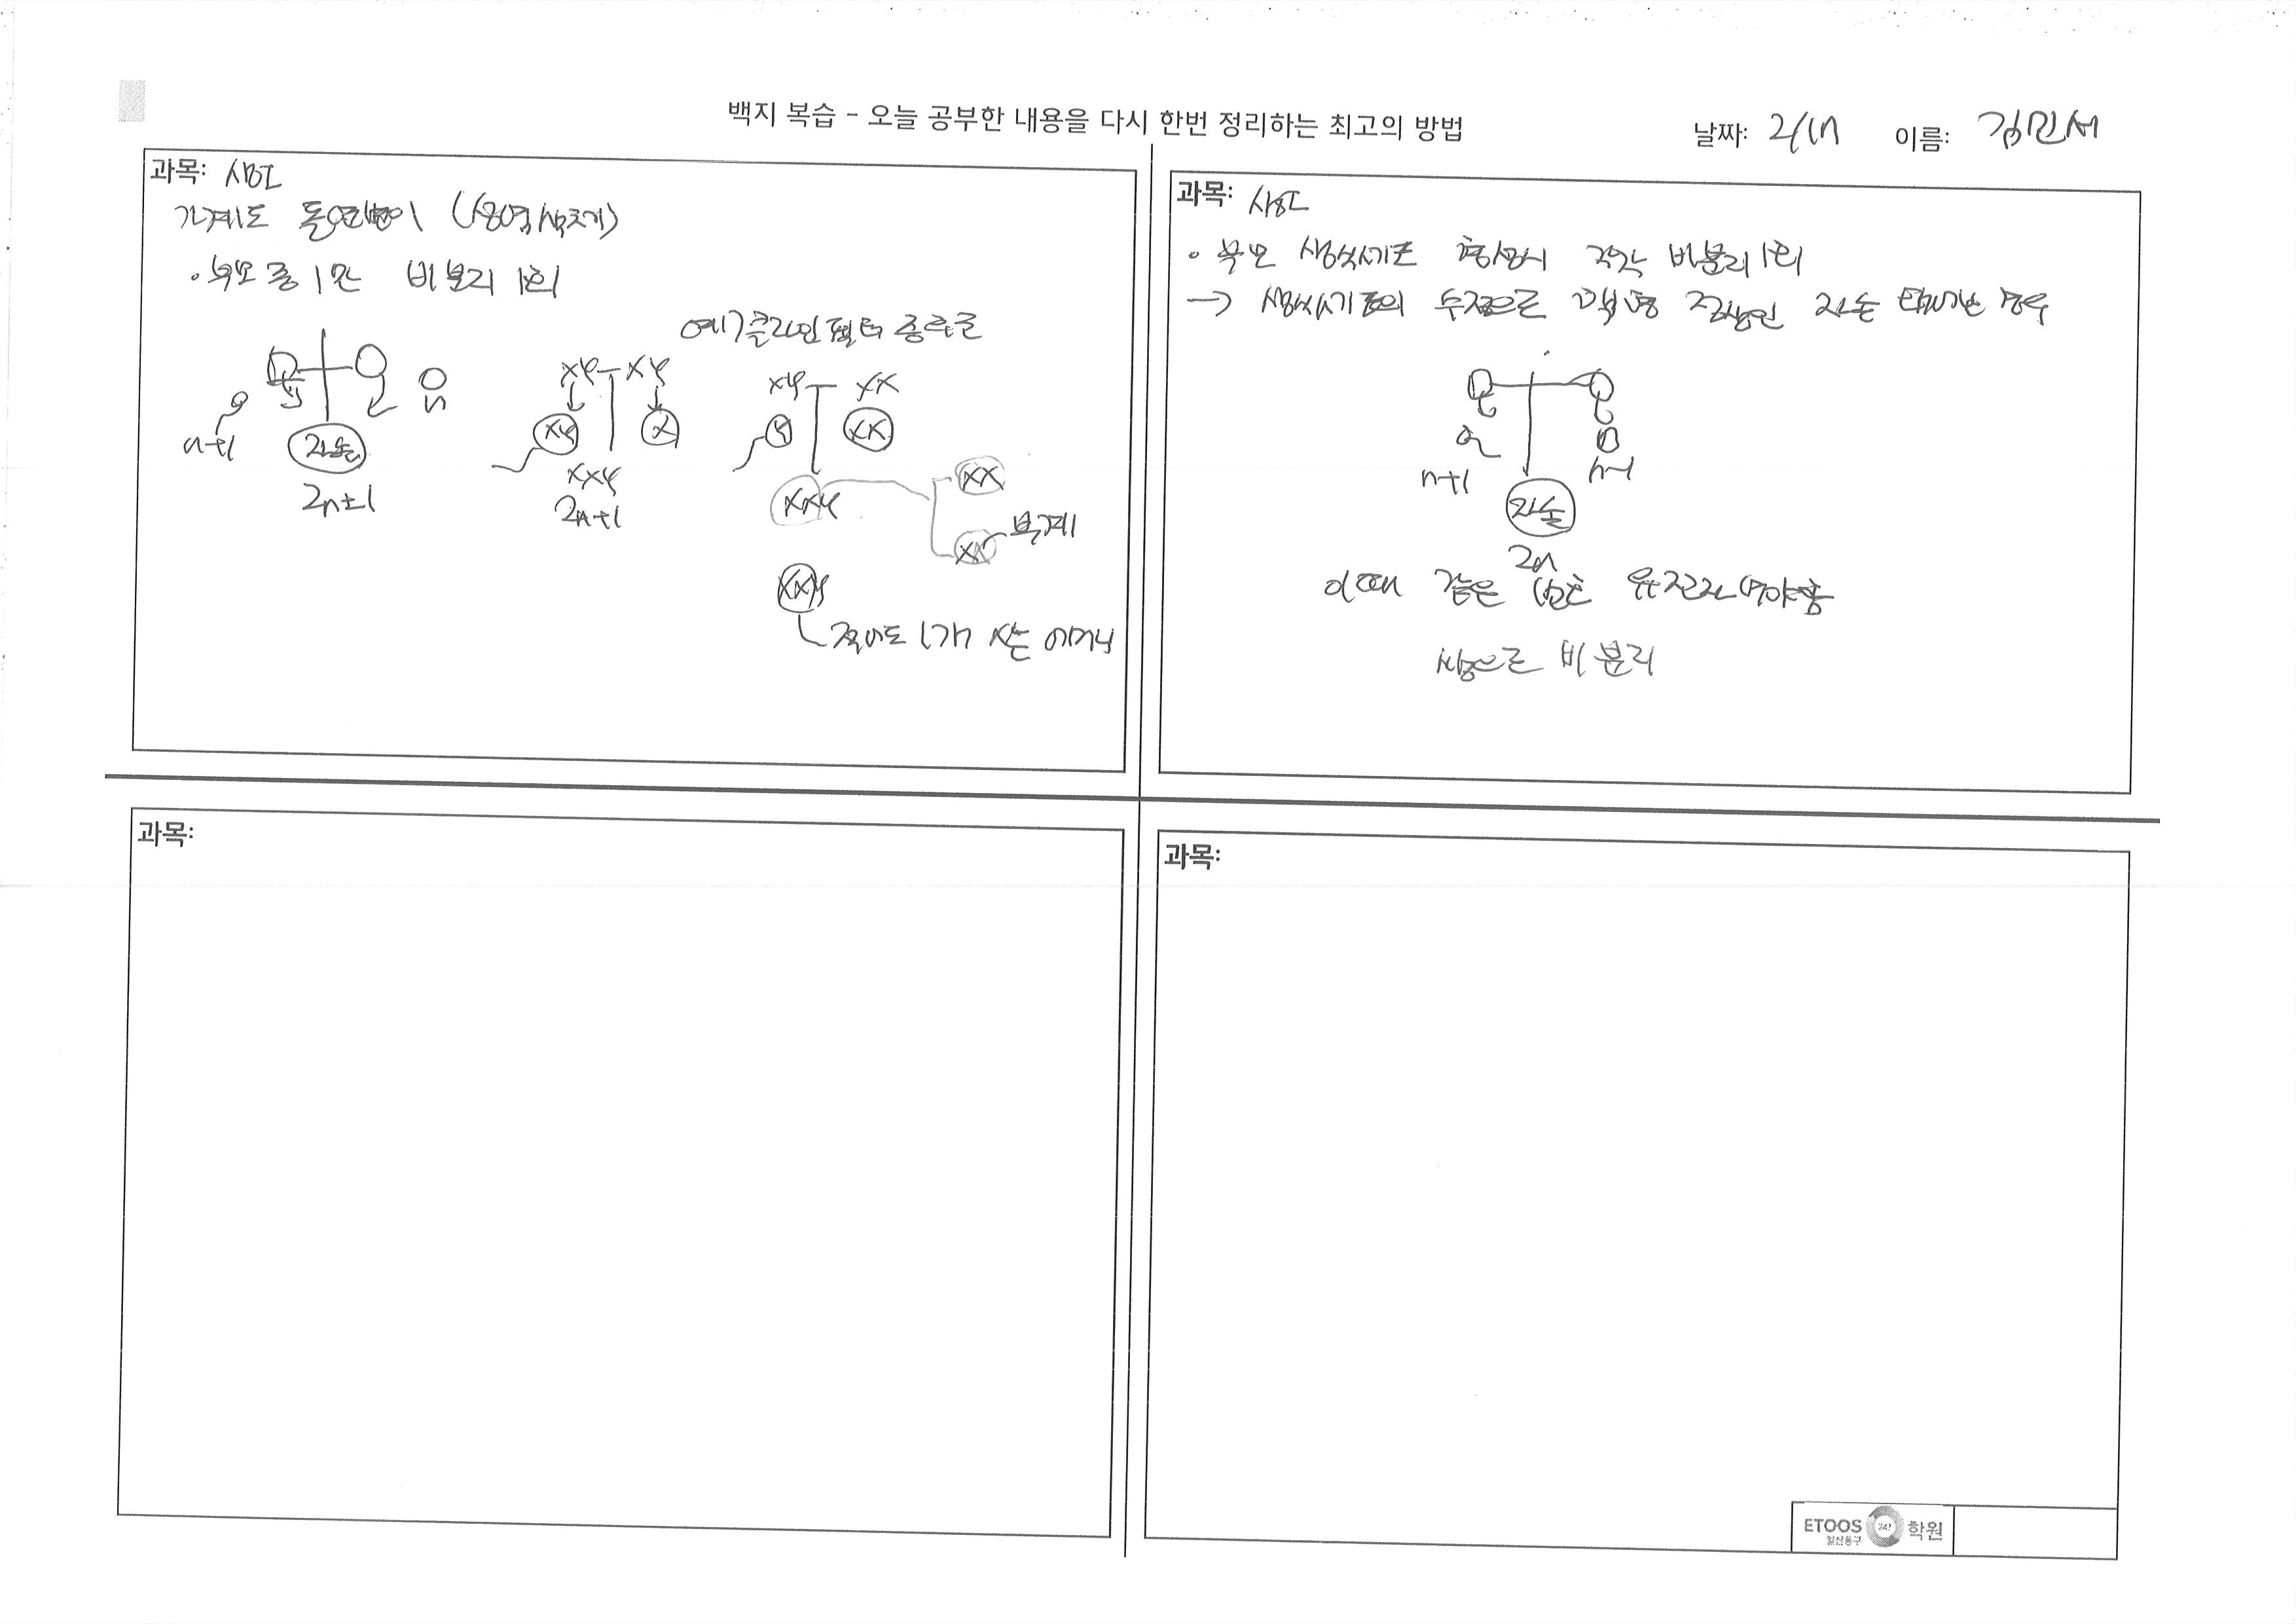 백지 복습 - 오늘 공부한 내용을 다시 한번 정리하는 최고의 방법
날짜: 2/17 이름: 김민서
과목: 생I
가계도 돌연변이 (용역삭초기)
· 부모 중 1만 비분리 1회
예) 클라인펠터 증후군
n+1
자손
2n±1
n
XY XY
XY X
XXY
2n+1
XY XX
Y XX
XXY
XX
XX 부계
XXY
적어도 1개 X는 어머니
과목: 생I
· 부모 생식세포 형성시 각각 비분리 1회
→ 생식세포의 수정으로 핵형 정상인 자손 태어난 경우
n+1 n-1
자손
2n
이때 같은 번호 유전자여야함
쌍으로 비분리
과목:
과목:
ETOOS 247 학원
일산동구